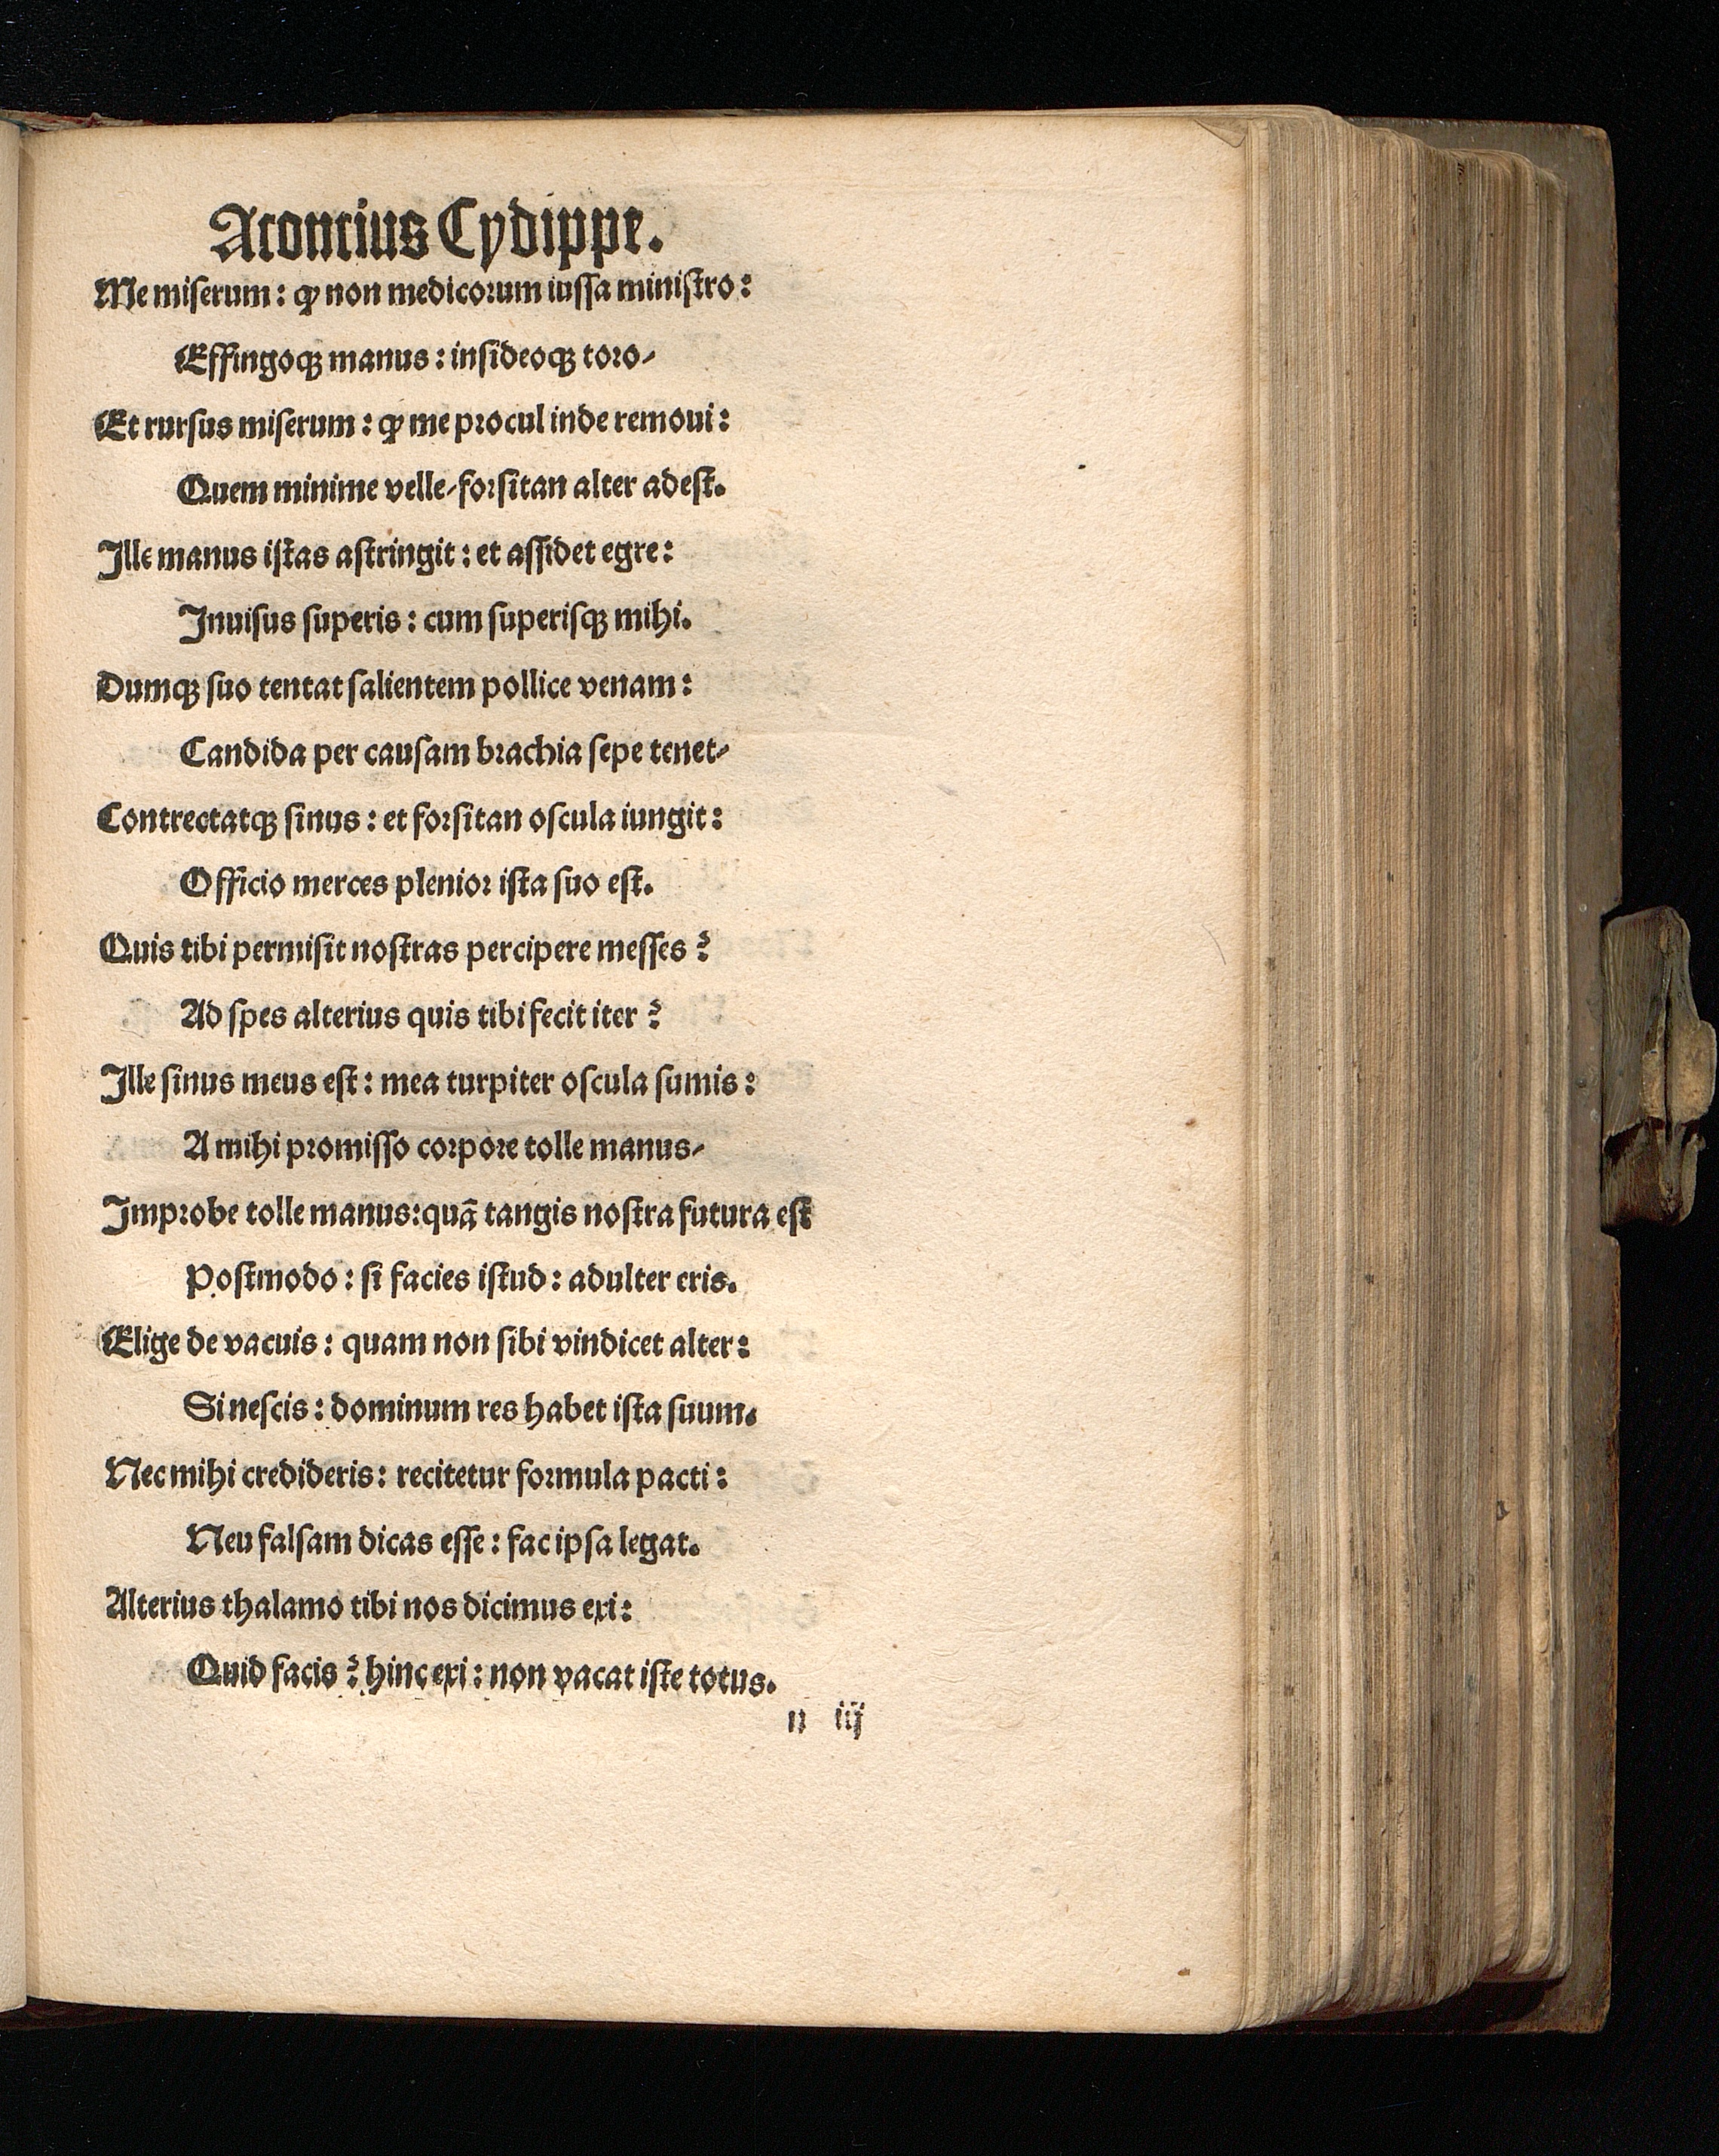 Acontius Cydippe.
Me miserum: ꝙ non medicorum iussa ministro:
Effingoqꝫ manus: insideoqꝫ toro/
Et rursus miserum: ꝙ me procul inde remoui:
Quem minime velle/ forsitan alter adest.
Ille manus istas astringit: et assidet egre:
Inuisus superis: cum superisqꝫ mihi.
Dumqꝫ suo tentat salientem pollice venam:
Candida per causam brachia sepe tenet/
Contrectatqꝫ sinus: et forsitan oscula iungit:
Officio merces plenior ista suo est.
Quis tibi permisit nostras percipere messes?
Ad spes alterius quis tibi fecit iter?
Ille sinus meus est: mea turpiter oscula sumis:
A mihi promisso corpore tolle manus/
Improbe tolle manus:quã tangis nostra futura est
Postmodo: si facies istud: adulter eris.
Elige de vacuis: quam non sibi vindicet alter:
Si nescis: dominum res habet ista suum.
Nec mihi credideris: recitetur formula pacti:
Neu falsam dicas esse: fac ipsa legat.
Alterius thalamo tibi nos dicimus exi:
Quid facis? hinc exi: non vacat iste totus.
n iij